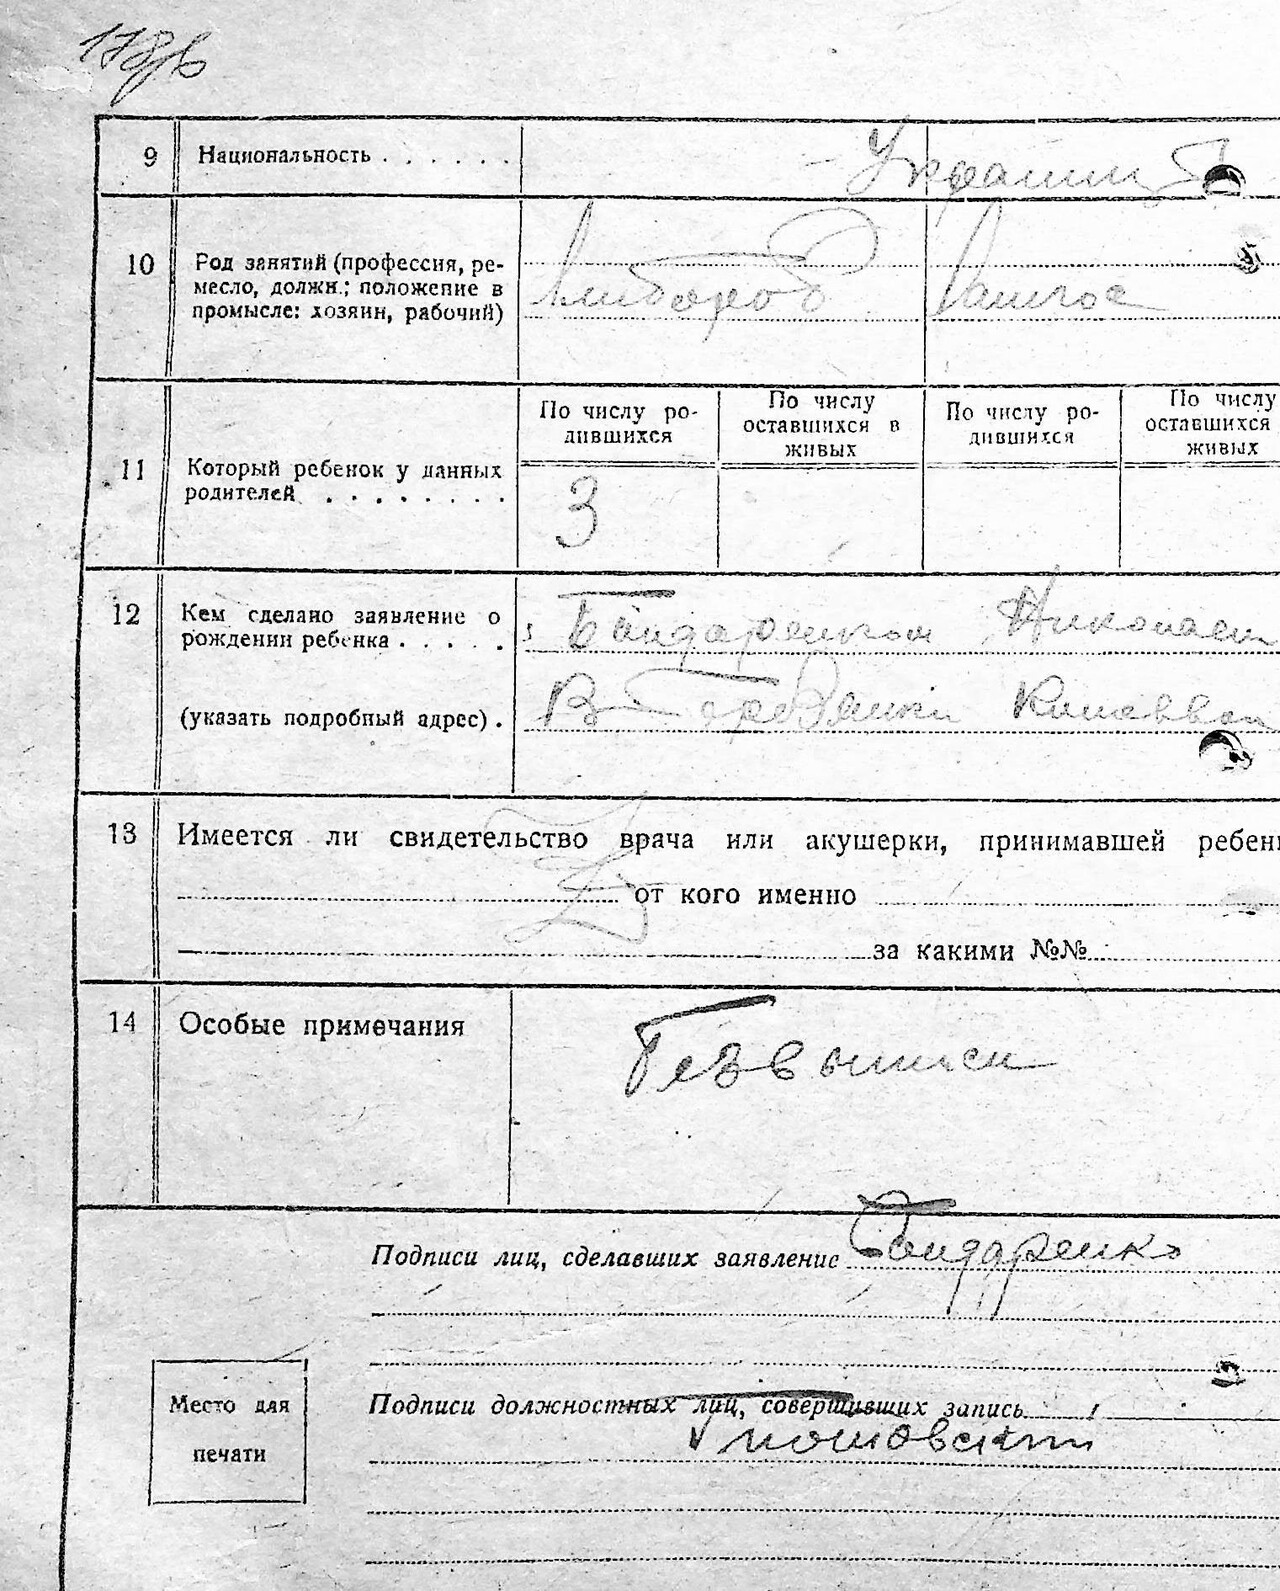 9 Национальность . . . . . . Украинц
10 Род занятий (профессия, ре-
месло, должн.; положение в
промысле: хозяин, рабочий)
Хлибороб
По числу ро-
дившихся
По числу
оставшихся в
живых
По числу ро-
дившихся
По числу
оставшихся
живых
11 Который ребенок у данных
родителей . . . . . . . .
3
12 Кем сделано заявление о
рождении ребенка . . . . .
Бондаренком Николаем
(указать подробный адрес) .
13 Имеется ли свидетельство врача или акушерки, принимавшей ребен
от кого именно
за какими №№
14 Особые примечания
Без выписи
Подписи лиц, сделавших заявление Бондаренко
Подписи должностных лиц, совершивших запись
Место для
печати